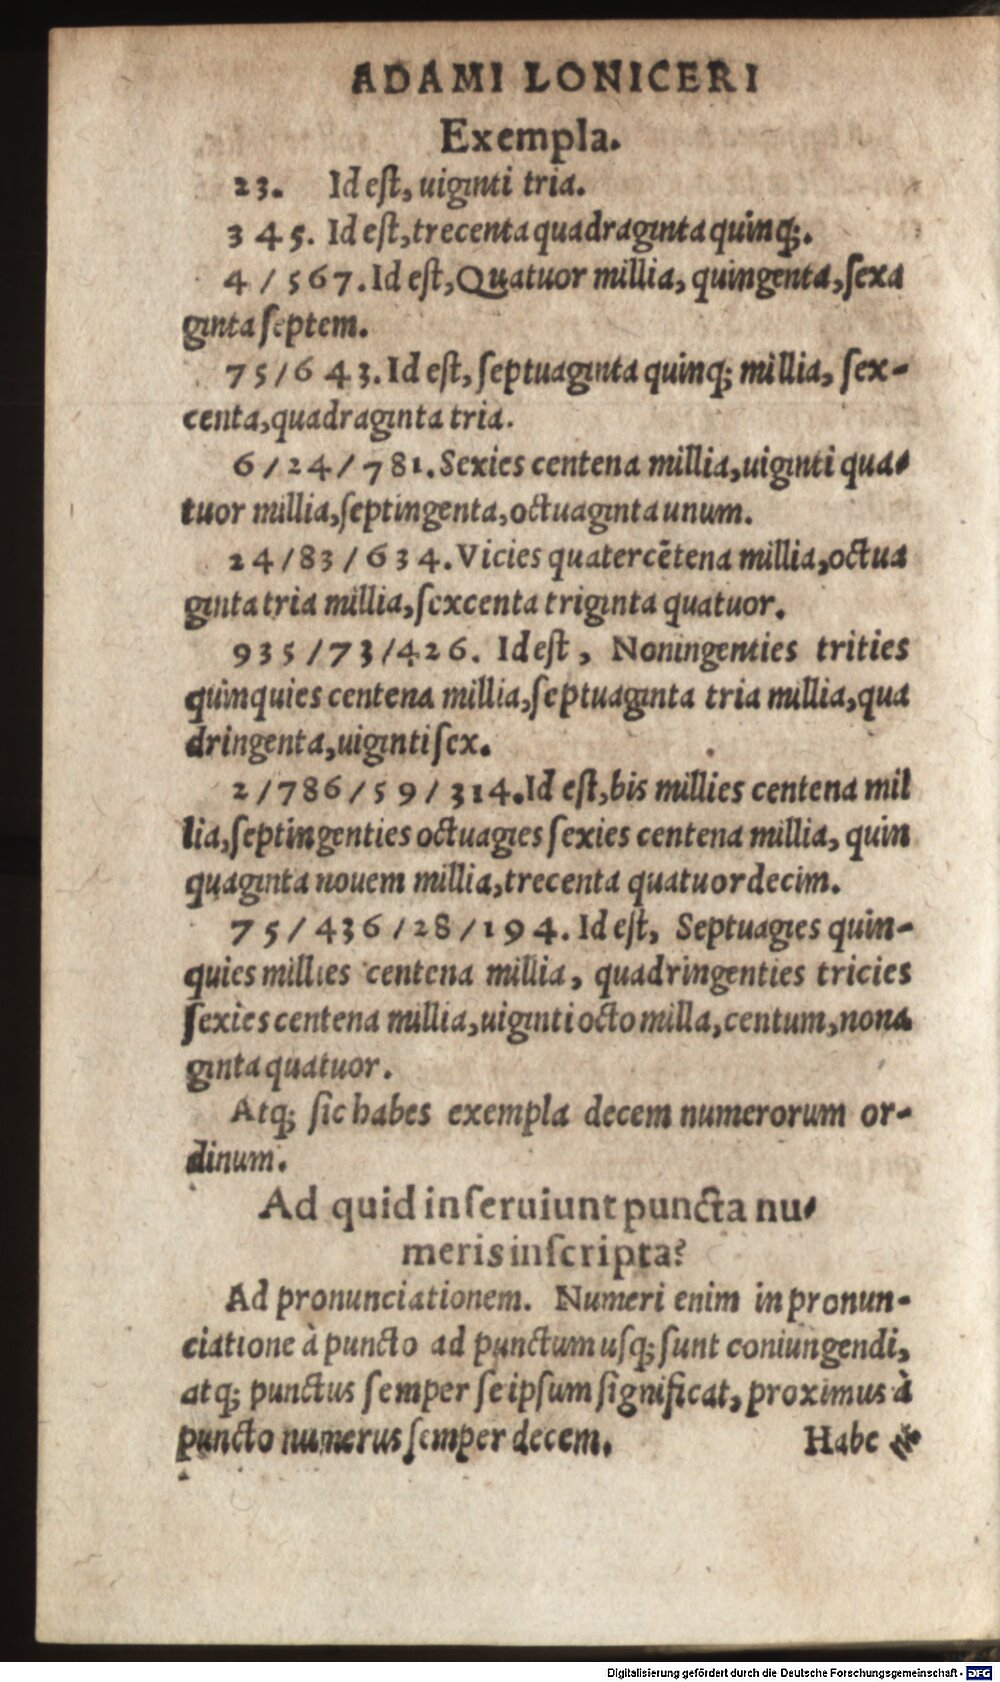 ADAMI LONICERI
Exempla.
23. Id eſt, uiginti tria.
345. Id eſt, trecenta quadraginta quinq;.
4/567. Id eſt, Quatuor millia, quingenta, ſexa
ginta ſeptem.
75/643. Id eſt, ſeptuaginta quinq; millia, ſex-
centa, quadraginta tria.
6/24/781. Sexies centena millia, uiginti qua-
tuor millia, ſeptingenta, octuaginta unum.
24/83/634. Vicies quater cētena millia, octua
ginta tria millia, ſexcenta triginta quatuor.
935/73/426. Id eſt, Noningenties trities
quinquies centena millia, ſeptuaginta tria millia, qua
dringenta, uiginti ſex.
2/786/59/314. Id eſt, bis millies centena mil
lia, ſeptingenties octuagies ſexies centena millia, quin
quaginta nouem millia, trecenta quatuordecim.
75/436/28/194. Id eſt, Septuagies quin-
quies millies centena millia, quadringenties tricies
ſexies centena millia, uiginti octo milla, centum, nona
ginta quatuor.
Atq; ſic habes exempla decem numerorum or-
dinum.
Ad quid inſeruiunt puncta nu-
meris inſcripta?
Ad pronunciationem. Numeri enim in pronun-
ciatione à puncto ad punctum uſq; ſunt coniungendi,
atq; punctus ſemper ſeipſum ſignificat, proximus à
puncto numerus ſemper decem. Habe
Digitalisierung gefördert durch die Deutsche Forschungsgemeinschaft - DFG